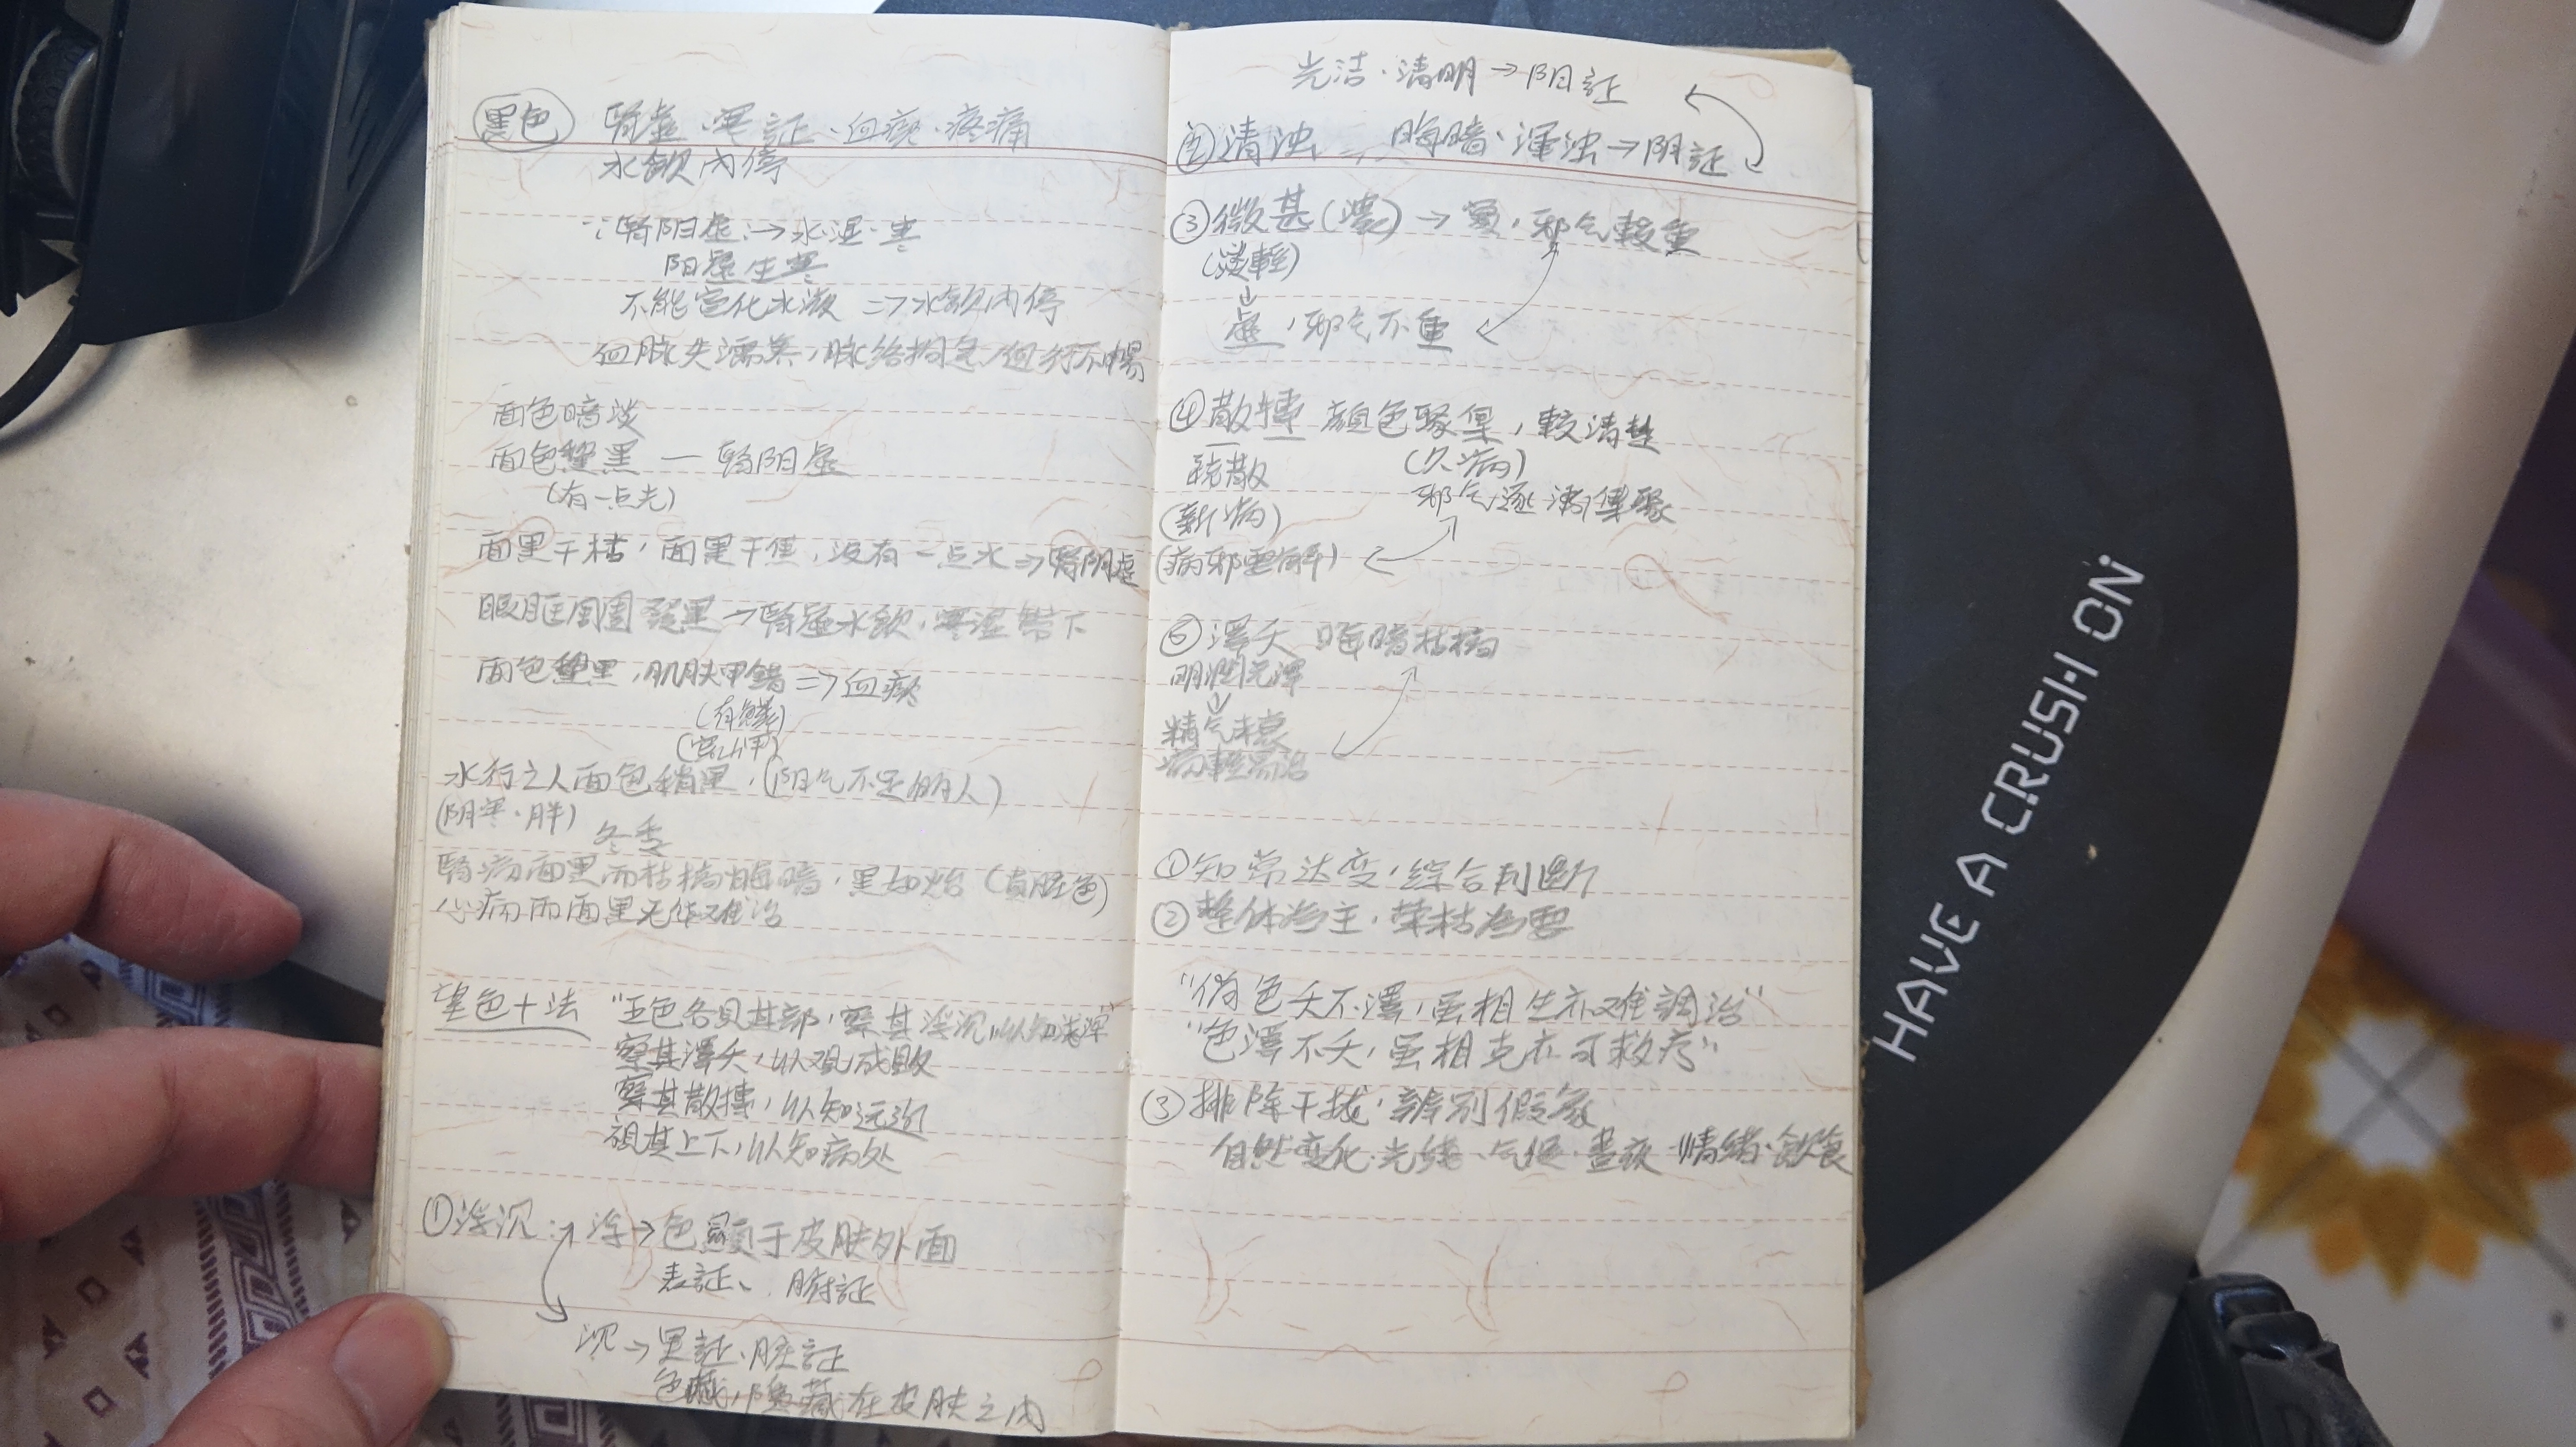 黑色 腎虛、寒証、血瘀、疼痛
水飲內停
∵腎阳虛→水湿·寒
阳虛生寒
不能宣化水液 ⇒水飲內停
血脉失濡养,脉络拘急,血行不暢
面色暗淡
面色黧黑 — 腎阳虛
(有一点光)
面黑干枯,面黑干焦,没有一点水⇒腎阴虛
眼眶周圍發黑→腎虛水飲,寒湿帶下
面色黧黑,肌肤甲錯⇒血瘀
(有鱗)
水行之人面色稍黑,(阳气不足的人)
(阴寒·胖)
冬季
腎病面黑而枯槁晦暗,黑如炲(真脏色)
心病而面黑无华难治
望色十法 "五色各見其部,察其浮沉,以知浅深"
察其澤夭,以观成敗
察其散摶,以知远近
視其上下,以知病处
①浮沉: 浮→色顯于皮肤外面
表証、腑証
沉→里証、脏証
色藏,隐藏在皮肤之内
光洁·清明→阳証
②清浊 晦暗、渾浊→阴証
③微甚(濃)→實,邪气較重
(淡輕)
↓
虛,邪气不重
④散摶 顏色聚集,較清楚
疏散 (久病)
(新病) 邪气逐漸集聚
(病邪要解)
⑤澤夭 晦暗枯槁
明潤光澤
↓
精气未衰
病輕易治
①知常达变,綜合判断
②整体為主,荣枯為要
"倘色夭不澤,虽相生亦难調治"
"色澤不夭,虽相克亦可救疗"
③排除干扰,辨别假象
自然变化·光线、气候·晝夜 情緒·飲食
HAVE A CRUSH ON